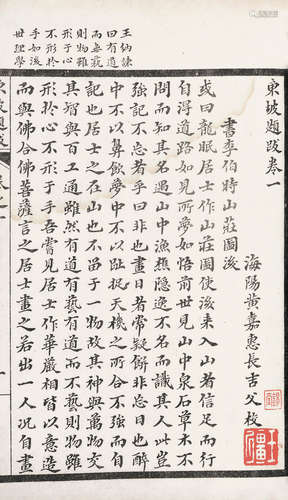 王納諫
曰有道
而無藝
則物雖
形于心
不形於
手如後
世理學
東坡題跋卷一
海陽黃嘉惠長吉父校
書李伯時山莊圖後
或曰龍眠居士作山莊圖使後來入山者信足而行
自得道路如見所夢如悟前世見山中泉石草木不
問而知其名遇山中漁樵隱逸不名而識其人此豈
強記不忘者乎曰非也畫日者常疑餅非忘日也醉
中不以鼻飲夢中不以趾捉天機之所合不強而自
記也居士之在山也不留于一物故其神與萬物交
其智與百工通雖然有道有藝有道而不藝則物雖
形於心不形於手吾嘗見居士作華嚴相皆以意造
而與佛合佛菩薩言之居士畫之若出一人況自畫